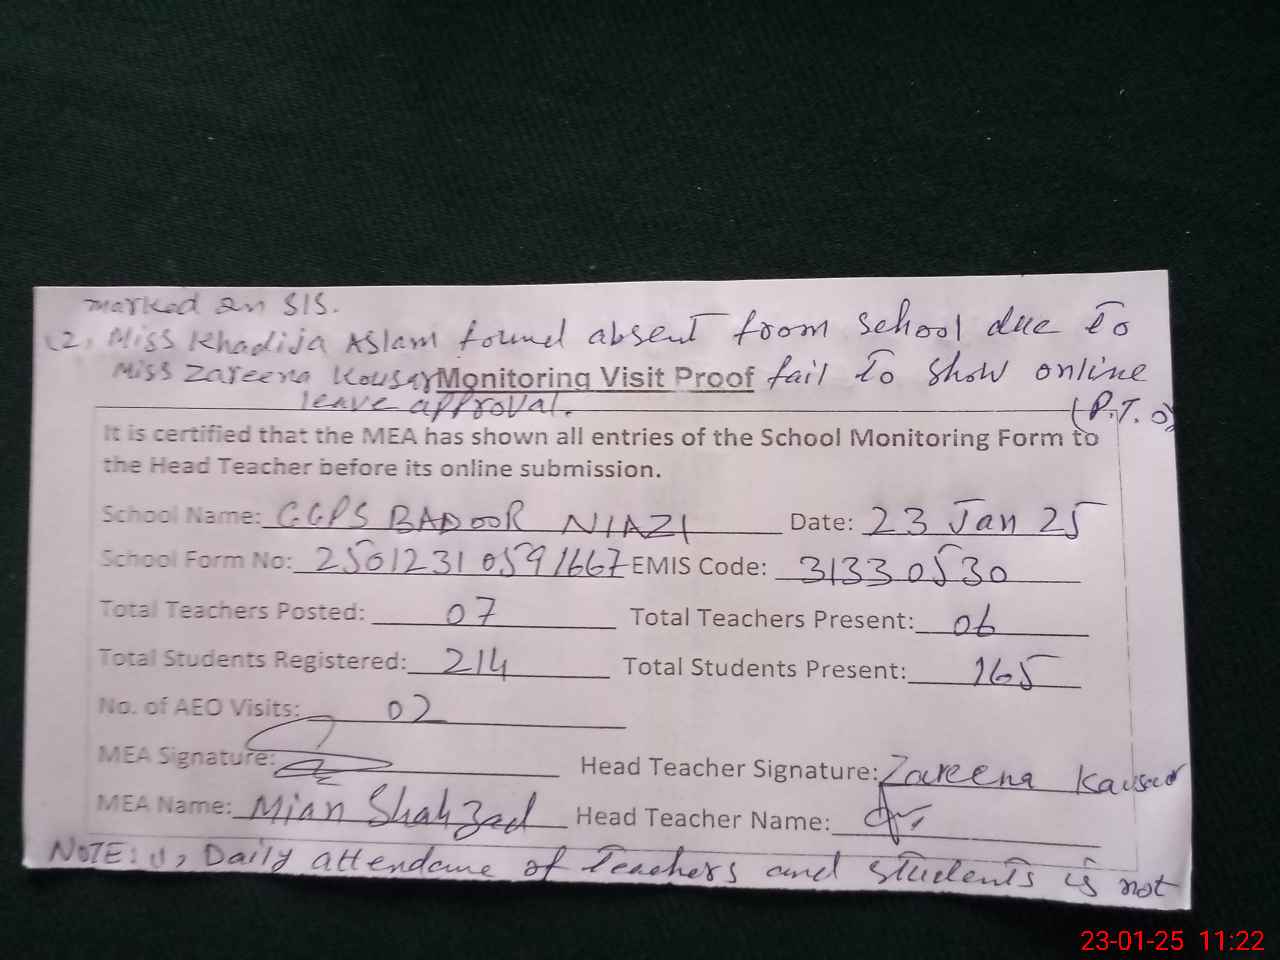 marked on SIS.
(2, Miss Khadija Aslam found absent from school due to
Miss Zareena Kousar fail to show online
leave approval.
(P.T.O)
Monitoring Visit Proof
It is certified that the MEA has shown all entries of the School Monitoring Form to
the Head Teacher before its online submission.
School Name: GGPS BADOOR NIAZI Date: 23 Jan 25
School Form No: 25012310591667 EMIS Code: 31330530
Total Teachers Posted: 07 Total Teachers Present: 06
Total Students Registered: 214 Total Students Present: 165
No. of AEO Visits: 02
MEA Signature: Head Teacher Signature: Zareena Kausar
MEA Name: Mian Shahzad Head Teacher Name:
NOTE: 1, Daily attendance of Teachers and students is not
23-01-25 11:22